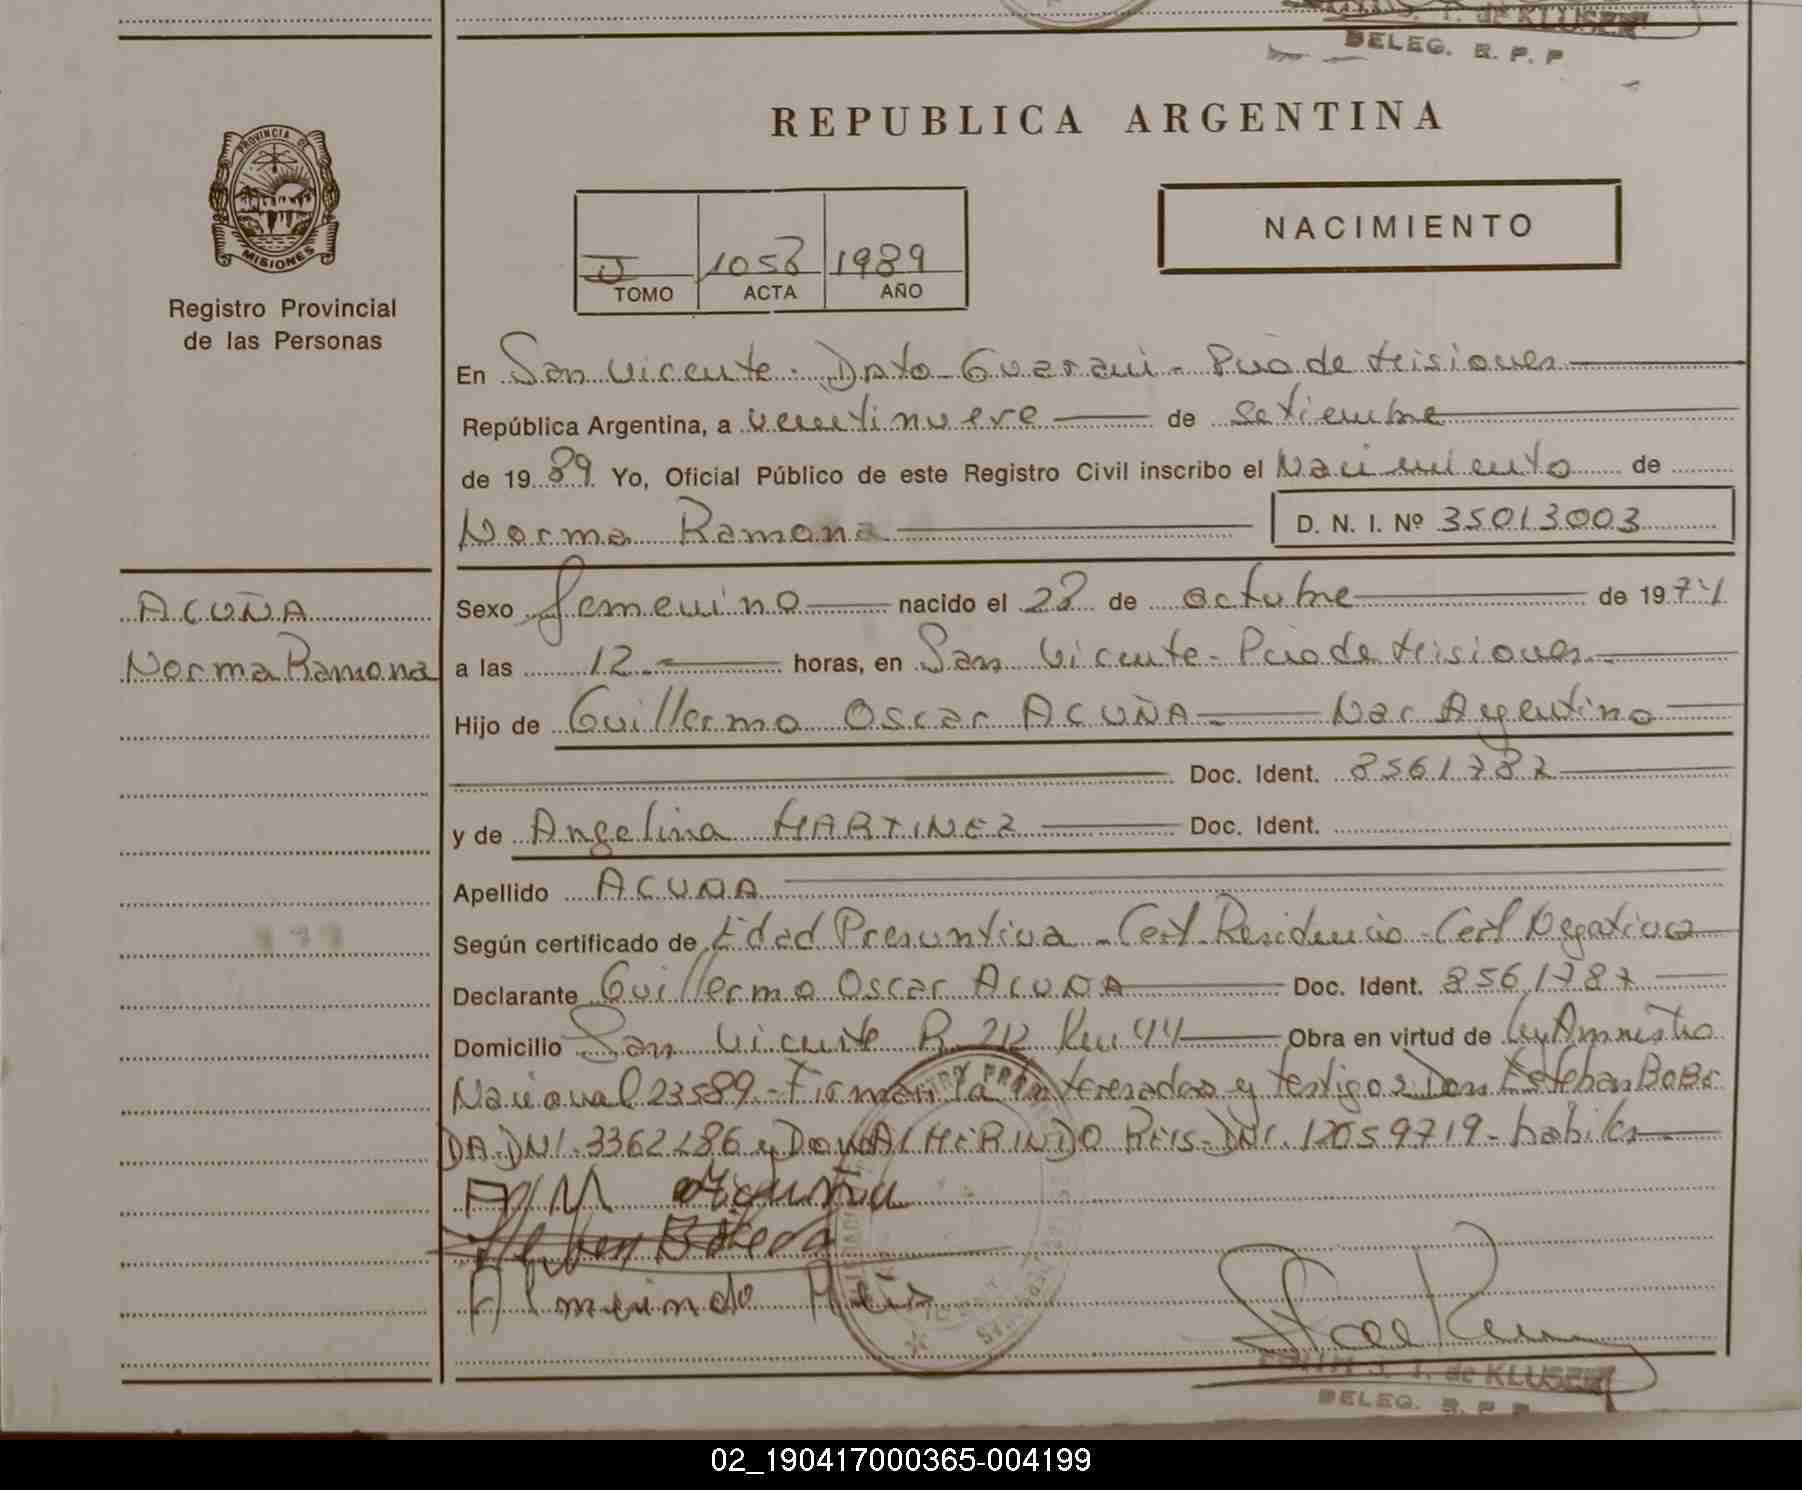 de KLUSENER
DELEG. R. P. P
REPUBLICA ARGENTINA
PROVINCIA DE
MISIONES
Registro Provincial
de las Personas
NACIMIENTO
1053 1989
TOMO ACTA AÑO
En San Vicente - Dpto Guarani - Pcia de Misiones
República Argentina, a veintinueve de setiembre
de 1989 Yo, Oficial Público de este Registro Civil inscribo el Nacimiento de
Norma Ramona D. N. I. Nº 35013003
ACUÑA
Norma Ramona
Sexo femenino nacido el 28 de octubre de 1974
a las 12 horas, en San Vicente - Pcia de Misiones
Hijo de Guillermo Oscar ACUÑA - Nac Argentino
Doc. Ident. 8561787
y de Angelina MARTINEZ Doc. Ident.
Apellido ACUÑA
Según certificado de Edad Presuntiva - Cert Residencia - Cert Negativa
Declarante Guillermo Oscar ACUÑA Doc. Ident. 8561787
Domicilio San Vicente R 212 Km 44 Obra en virtud de Ley Amnistia
Nacional 23589 - Firman la interesada y testigos Don Esteban BOBE
DA. DNI. 3362286 y Don ALMERINDO REIS - DNI. 12059719 - habiles
Acuña
Esteban Bobeda
Almerindo Reis
EDITH J. T. de KLUSENER
DELEG. R. P. P
02_190417000365-004199